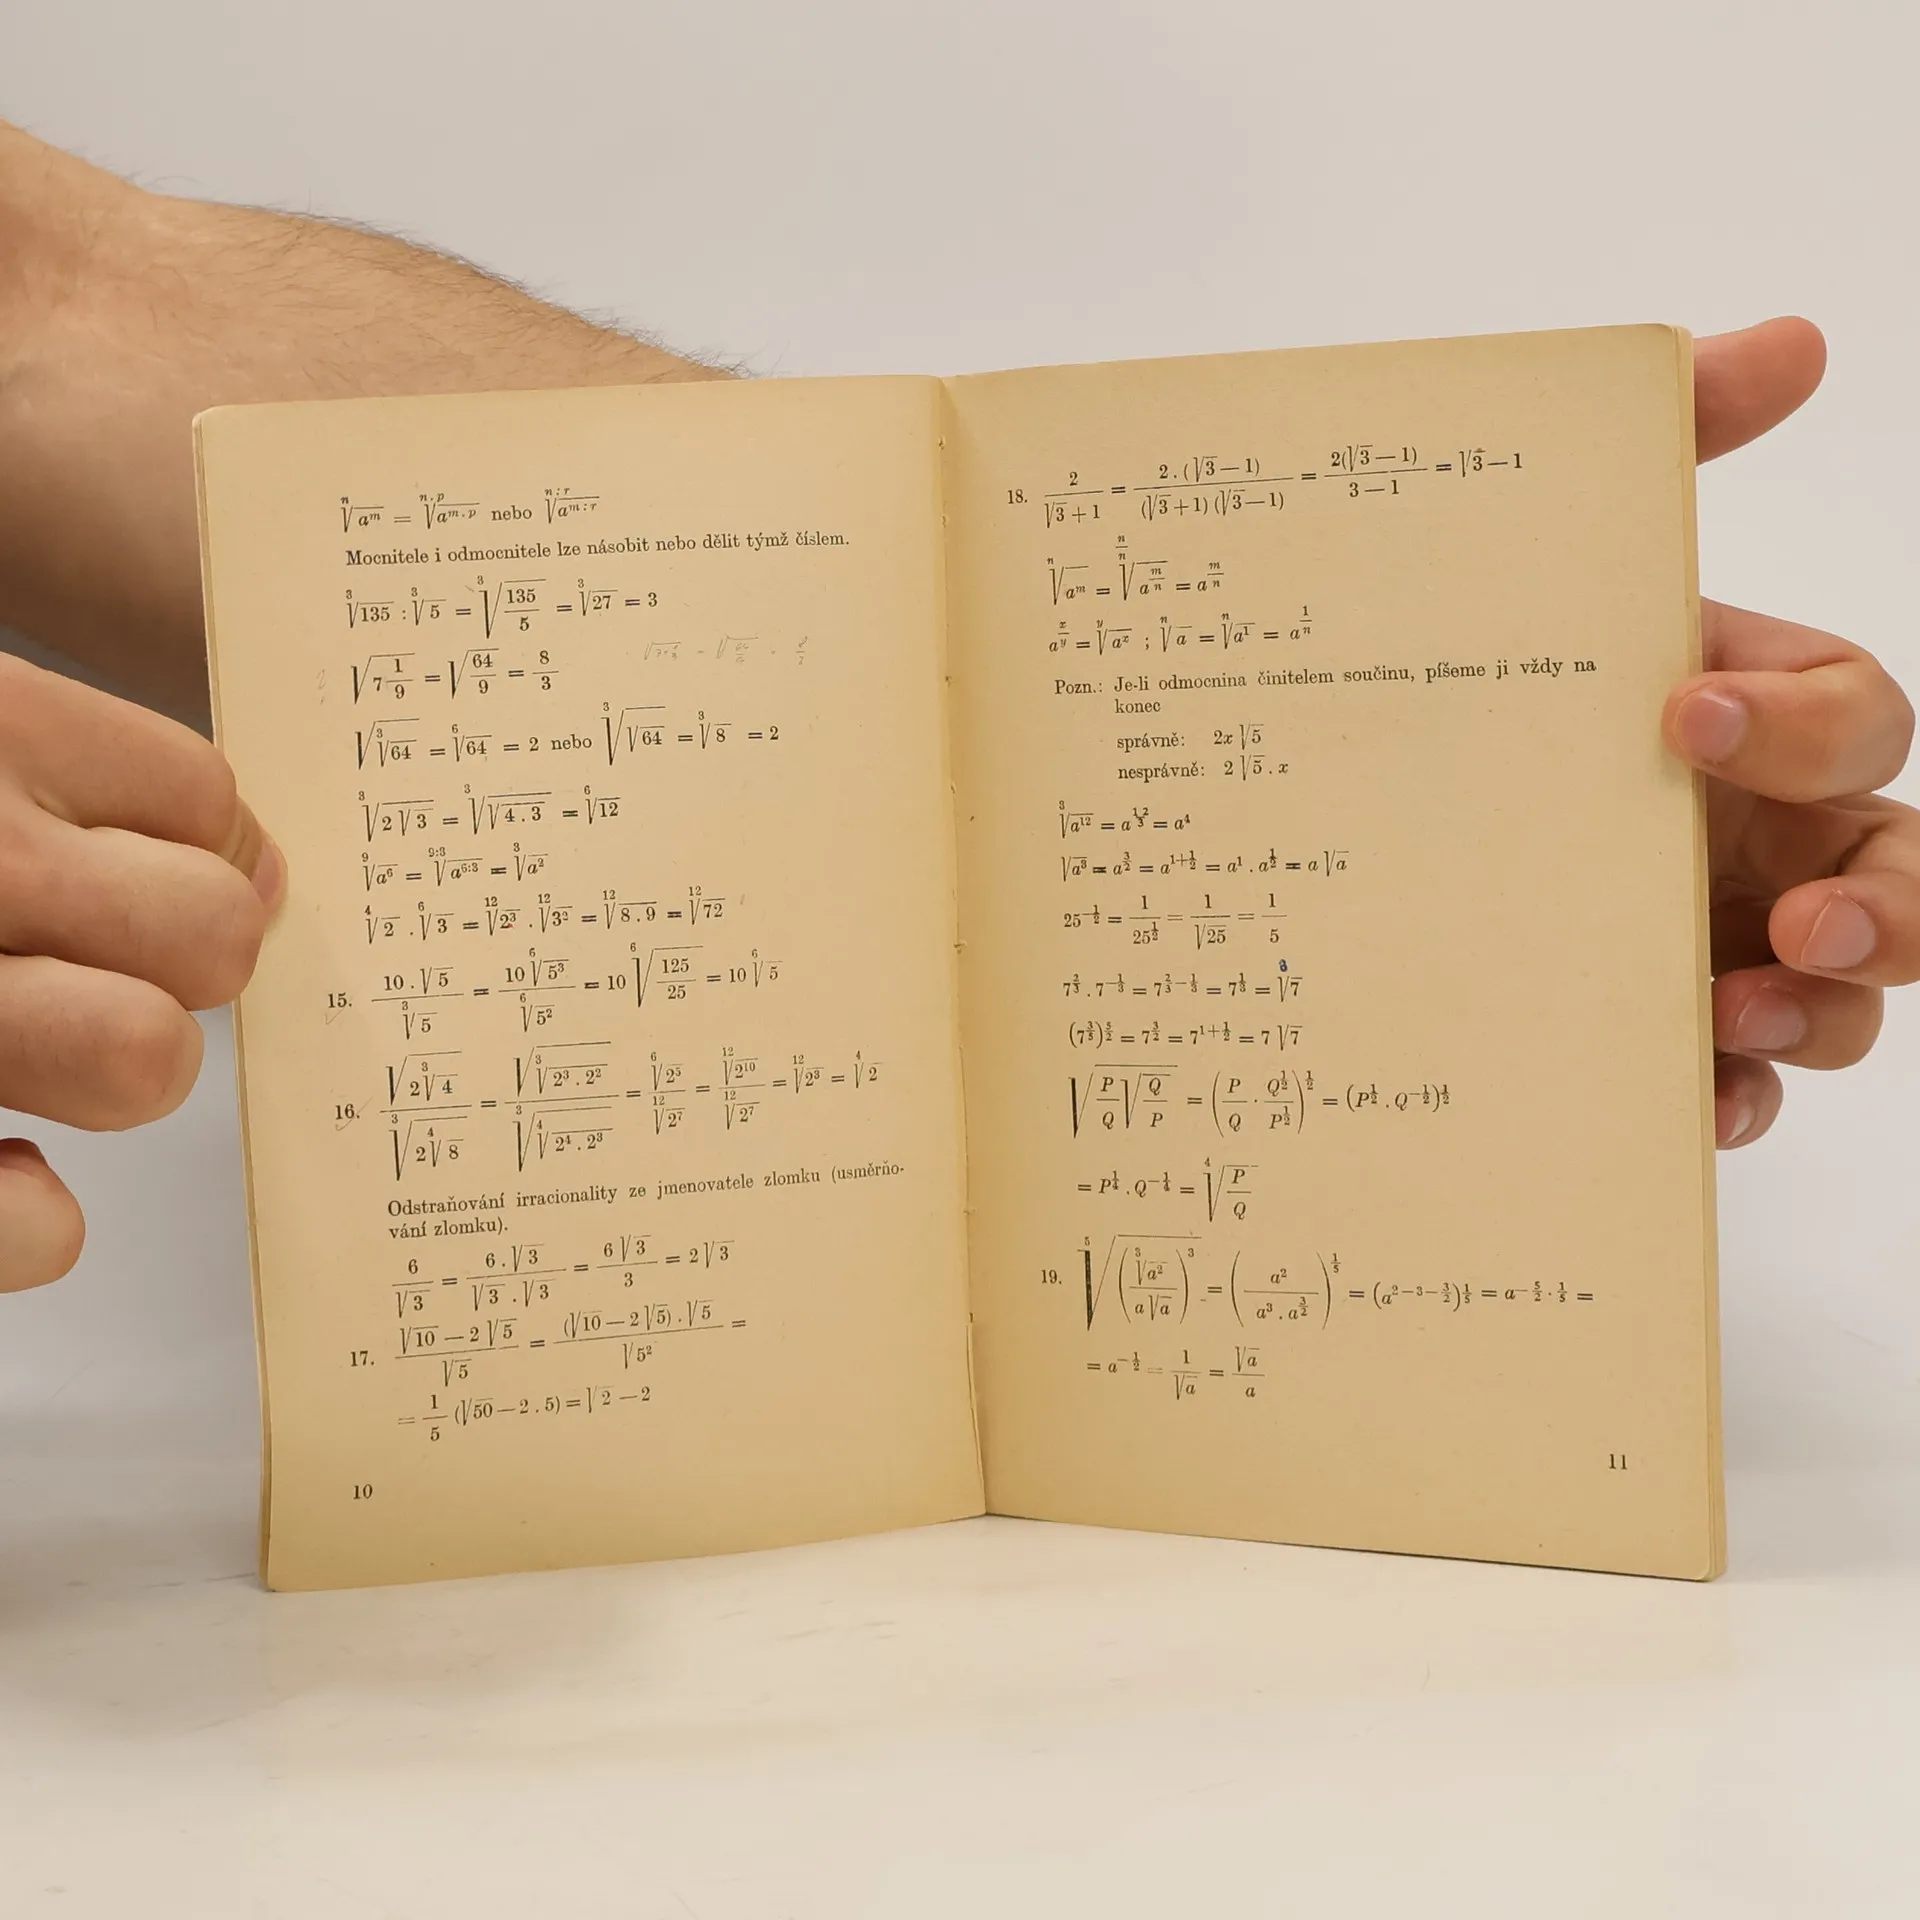 ⁿ√aᵐ = ⁿ·ᵖ√aᵐ·ᵖ nebo ⁿ:ʳ√aᵐ:ʳ
Mocnitele i odmocnitele lze násobit nebo dělit týmž číslem.
³√135 : ³√5 = ³√(135/5) = ³√27 = 3
√(7 1/9) = √(64/9) = 8/3
√(³√64) = ⁶√64 = 2 nebo ³√(√64) = ³√8 = 2
³√(2√3) = ³√(√(4.3)) = ⁶√12
⁹√a⁶ = ⁹:³√a⁶:³ = ³√a²
⁴√2 . ⁶√3 = ¹²√2³ . ¹²√3² = ¹²√(8.9) = ¹²√72
15. (10.√5)/(³√5) = (10 ⁶√5³)/(⁶√5²) = 10 ⁶√(125/25) = 10 ⁶√5
16. √(2 ³√4)/³√(2 ⁴√8) = √(³√(2³.2²))/³√(⁴√(2⁴.2³)) = ⁶√2⁵/¹²√2⁷ = ¹²√2¹⁰/¹²√2⁷ = ¹²√2³ = ⁴√2
Odstraňování irracionality ze jmenovatele zlomku (usměrňo-
vání zlomku).
6/√3 = (6.√3)/(√3.√3) = (6√3)/3 = 2√3
17. (√10 − 2√5)/√5 = ((√10 − 2√5).√5)/√5² =
= 1/5 (√50 − 2.5) = √2 − 2
10
18. 2/(√3+1) = (2.(√3−1))/((√3+1)(√3−1)) = (2(√3−1))/(3−1) = √3−1
ⁿ√aᵐ = ^(n/n)√(a^(m/n)) = a^(m/n)
a^(x/y) = ʸ√aˣ ; ⁿ√a = ⁿ√a¹ = a^(1/n)
Pozn.: Je-li odmocnina činitelem součinu, píšeme ji vždy na
konec
správně: 2x √5
nesprávně: 2 √5 . x
³√a¹² = a^(12/3) = a⁴
√a³ = a^(3/2) = a^(1+1/2) = a¹ . a^(1/2) = a √a
25^(−1/2) = 1/25^(1/2) = 1/√25 = 1/5
7^(2/3) . 7^(−1/3) = 7^(2/3−1/3) = 7^(1/3) = ³√7
(7^(3/5))^(5/2) = 7^(3/2) = 7^(1+1/2) = 7 √7
√(P/Q √(Q/P)) = (P/Q . Q^(1/2)/P^(1/2))^(1/2) = (P^(1/2) . Q^(−1/2))^(1/2)
= P^(1/4) . Q^(−1/4) = ⁴√(P/Q)
19. ⁵√((³√a²/(a√a))³) = (a²/(a³ . a^(3/2)))^(1/5) = (a^(2−3−3/2))^(1/5) = a^(−5/2 . 1/5) =
= a^(−1/2) = 1/√a = √a/a
11